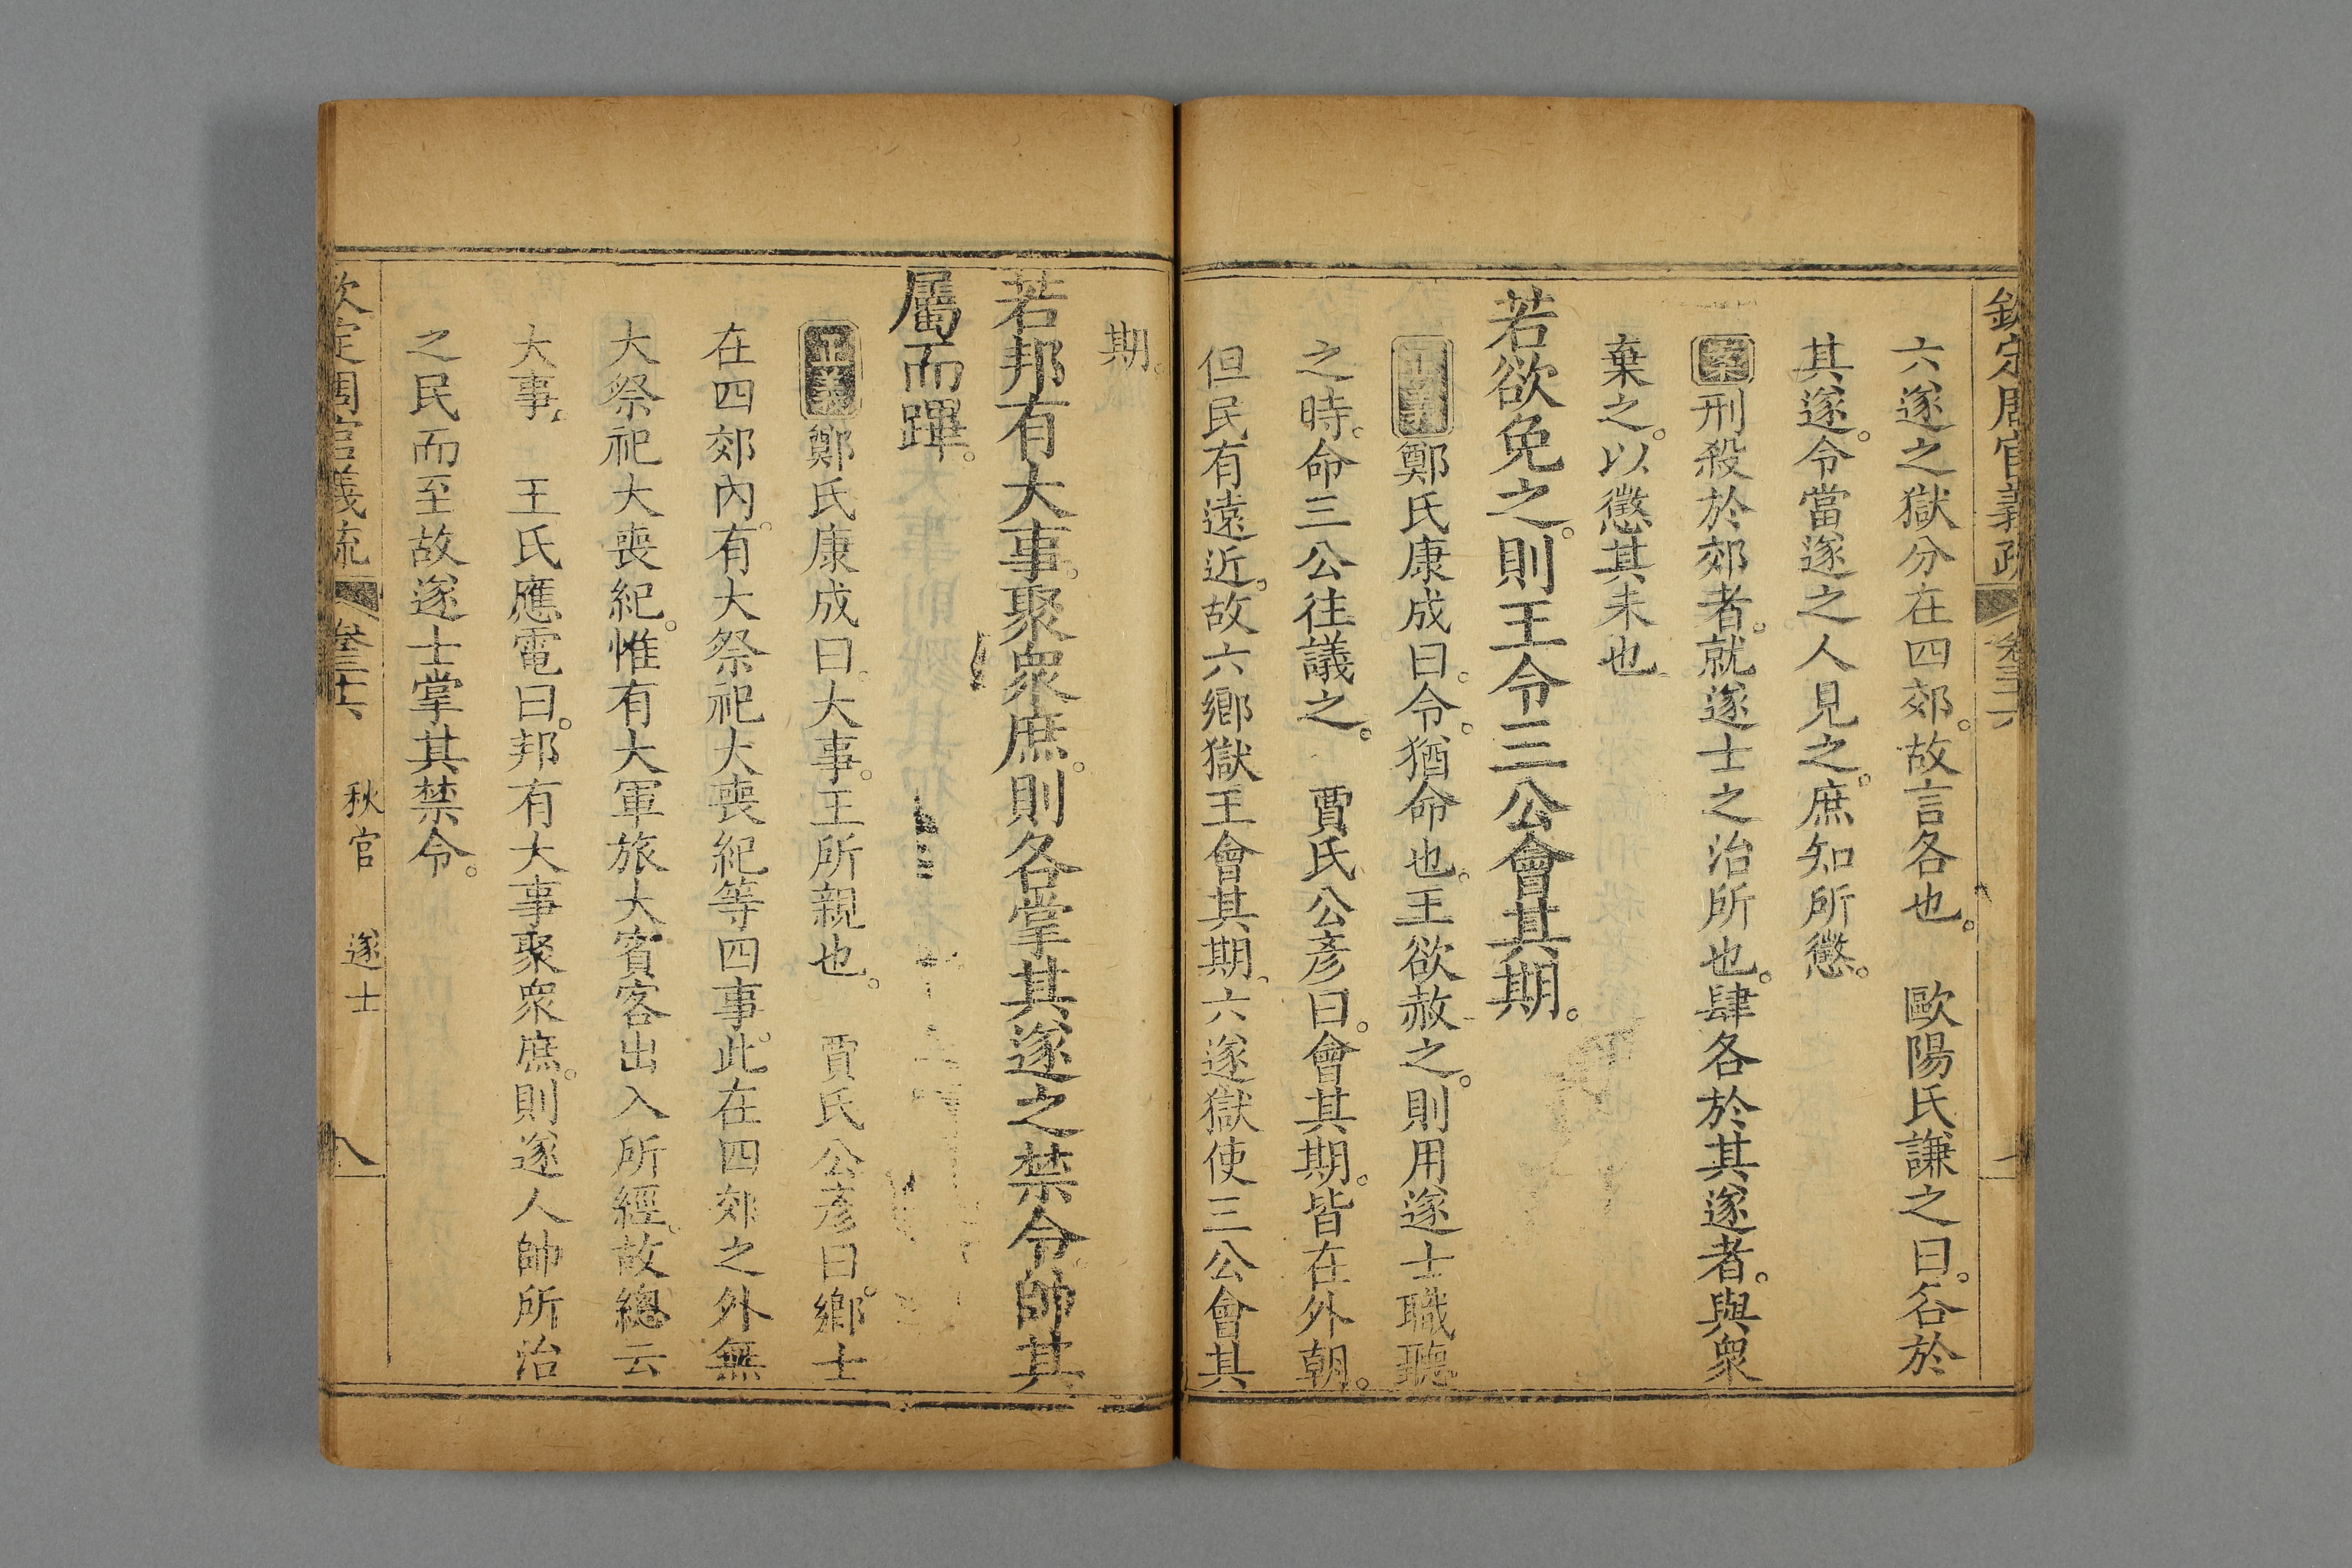 欽定周官義疏 卷三十六
六遂之獄分在四郊。故言各也。　歐陽氏謙之曰。各於
其遂。令當遂之人見之。庶知所懲。
案刑殺於郊者。就遂士之治所也。肆各於其遂者。與衆
棄之。以懲其未也
若欲免之。則王令三公會其期。
正義鄭氏康成曰。令。猶命也。王欲赦之。則用遂士職聽
之時。命三公往議之。　賈氏公彥曰。會其期。皆在外朝。
但民有遠近。故六鄉獄王會其期、六遂獄使三公會其
期。
若邦有大事。聚衆庶。則各掌其遂之禁令。帥其
屬而蹕。
正義鄭氏康成曰。大事。王所親也。　賈氏公彥曰。鄉士
在四郊內。有大祭祀大喪紀等四事。此在四郊之外無
大祭祀大喪紀。惟有大軍旅大賓客出入所經。故總云
大事。　王氏應電曰。邦有大事聚衆庶。則遂人帥所治
之民而至故遂士掌其禁令。
欽定周官義疏 卷三十六 秋官 遂士 八